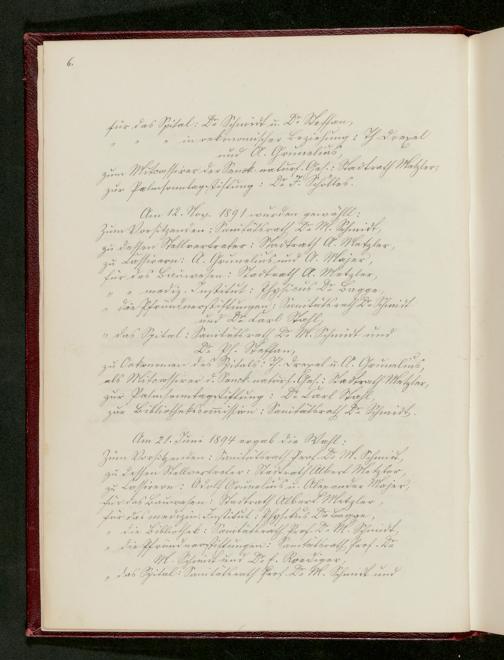 6.
für das Spital: Dr Schmidt u. Dr Steffan,
" " " in oekonomischer Beziehung: Th. Drexel
und A. Grunelius,
zum Mitcassirer der Senck. naturf. Ges.: Stadtrath Metzler,
zur Palmsonntag-Stiftung: Dr J. Schölles.
Am 12. Nov. 1891 wurden gewählt:
Zum Vorsitzenden: Sanitätsrath Dr M. Schmidt,
zu dessen Stellvertreter: Stadtrath A. Metzler,
zu Cassirern: A. Grunelius und A. Majer,
für das Bauwesen: Stadtrath A. Metzler,
" " mediz. Institut: Physicus Dr Bagge,
" die Pfründnerstiftungen: Sanitätsrath Dr Schmidt
und Dr Carl Stahl,
" das Spital: Sanitätsrath Dr M. Schmidt und
Dr Ph. Steffan,
zu Oekonomen des Spitals: Th. Drexel u. A. Grunelius,
als Mitcassirer d. Senck. naturf. Ges.: Stadtrath Metzler,
zur Palmsonntagstiftung: Dr Carl Stahl,
zur Bibliothekcommission: Sanitätsrath Dr Schmidt.
Am 21. Juni 1894 ergab die Wahl:
Zum Vorsitzenden: Sanitätsrath Prof. Dr M. Schmidt,
zu dessen Stellvertreter: Stadtrath Albert Metzler,
zu Cassirern: Adolf Grunelius u. Alexander Majer,
für das Bauwesen: Stadtrath Albert Metzler,
für das medizin. Institut: Physikus Dr Bagge,
" die Bibliothek: Sanitätsrath Prof. Dr M. Schmidt,
" die Pfründnerstiftungen: Sanitätsrath Prof. Dr
M. Schmidt und Dr E. Roediger,
" das Spital: Sanitätsrath Prof. Dr M. Schmidt und